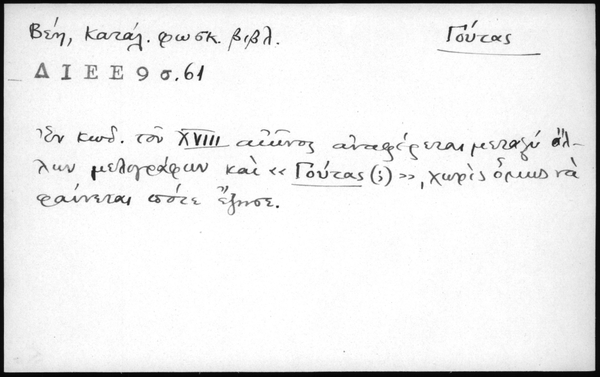 Βέη, Κατάλ. φωσκ. βιβλ. Γούτας
ΔΙΕΕ 9 σ. 61
Ἐν κωδ. τοῦ XVIII αἰῶνος ἀναφέρεται μεταξύ ἄλ-
λων μελογράφων καὶ «Γούτας (;)», χωρὶς ὅμως νὰ
φαίνεται πότε ἔζησε.